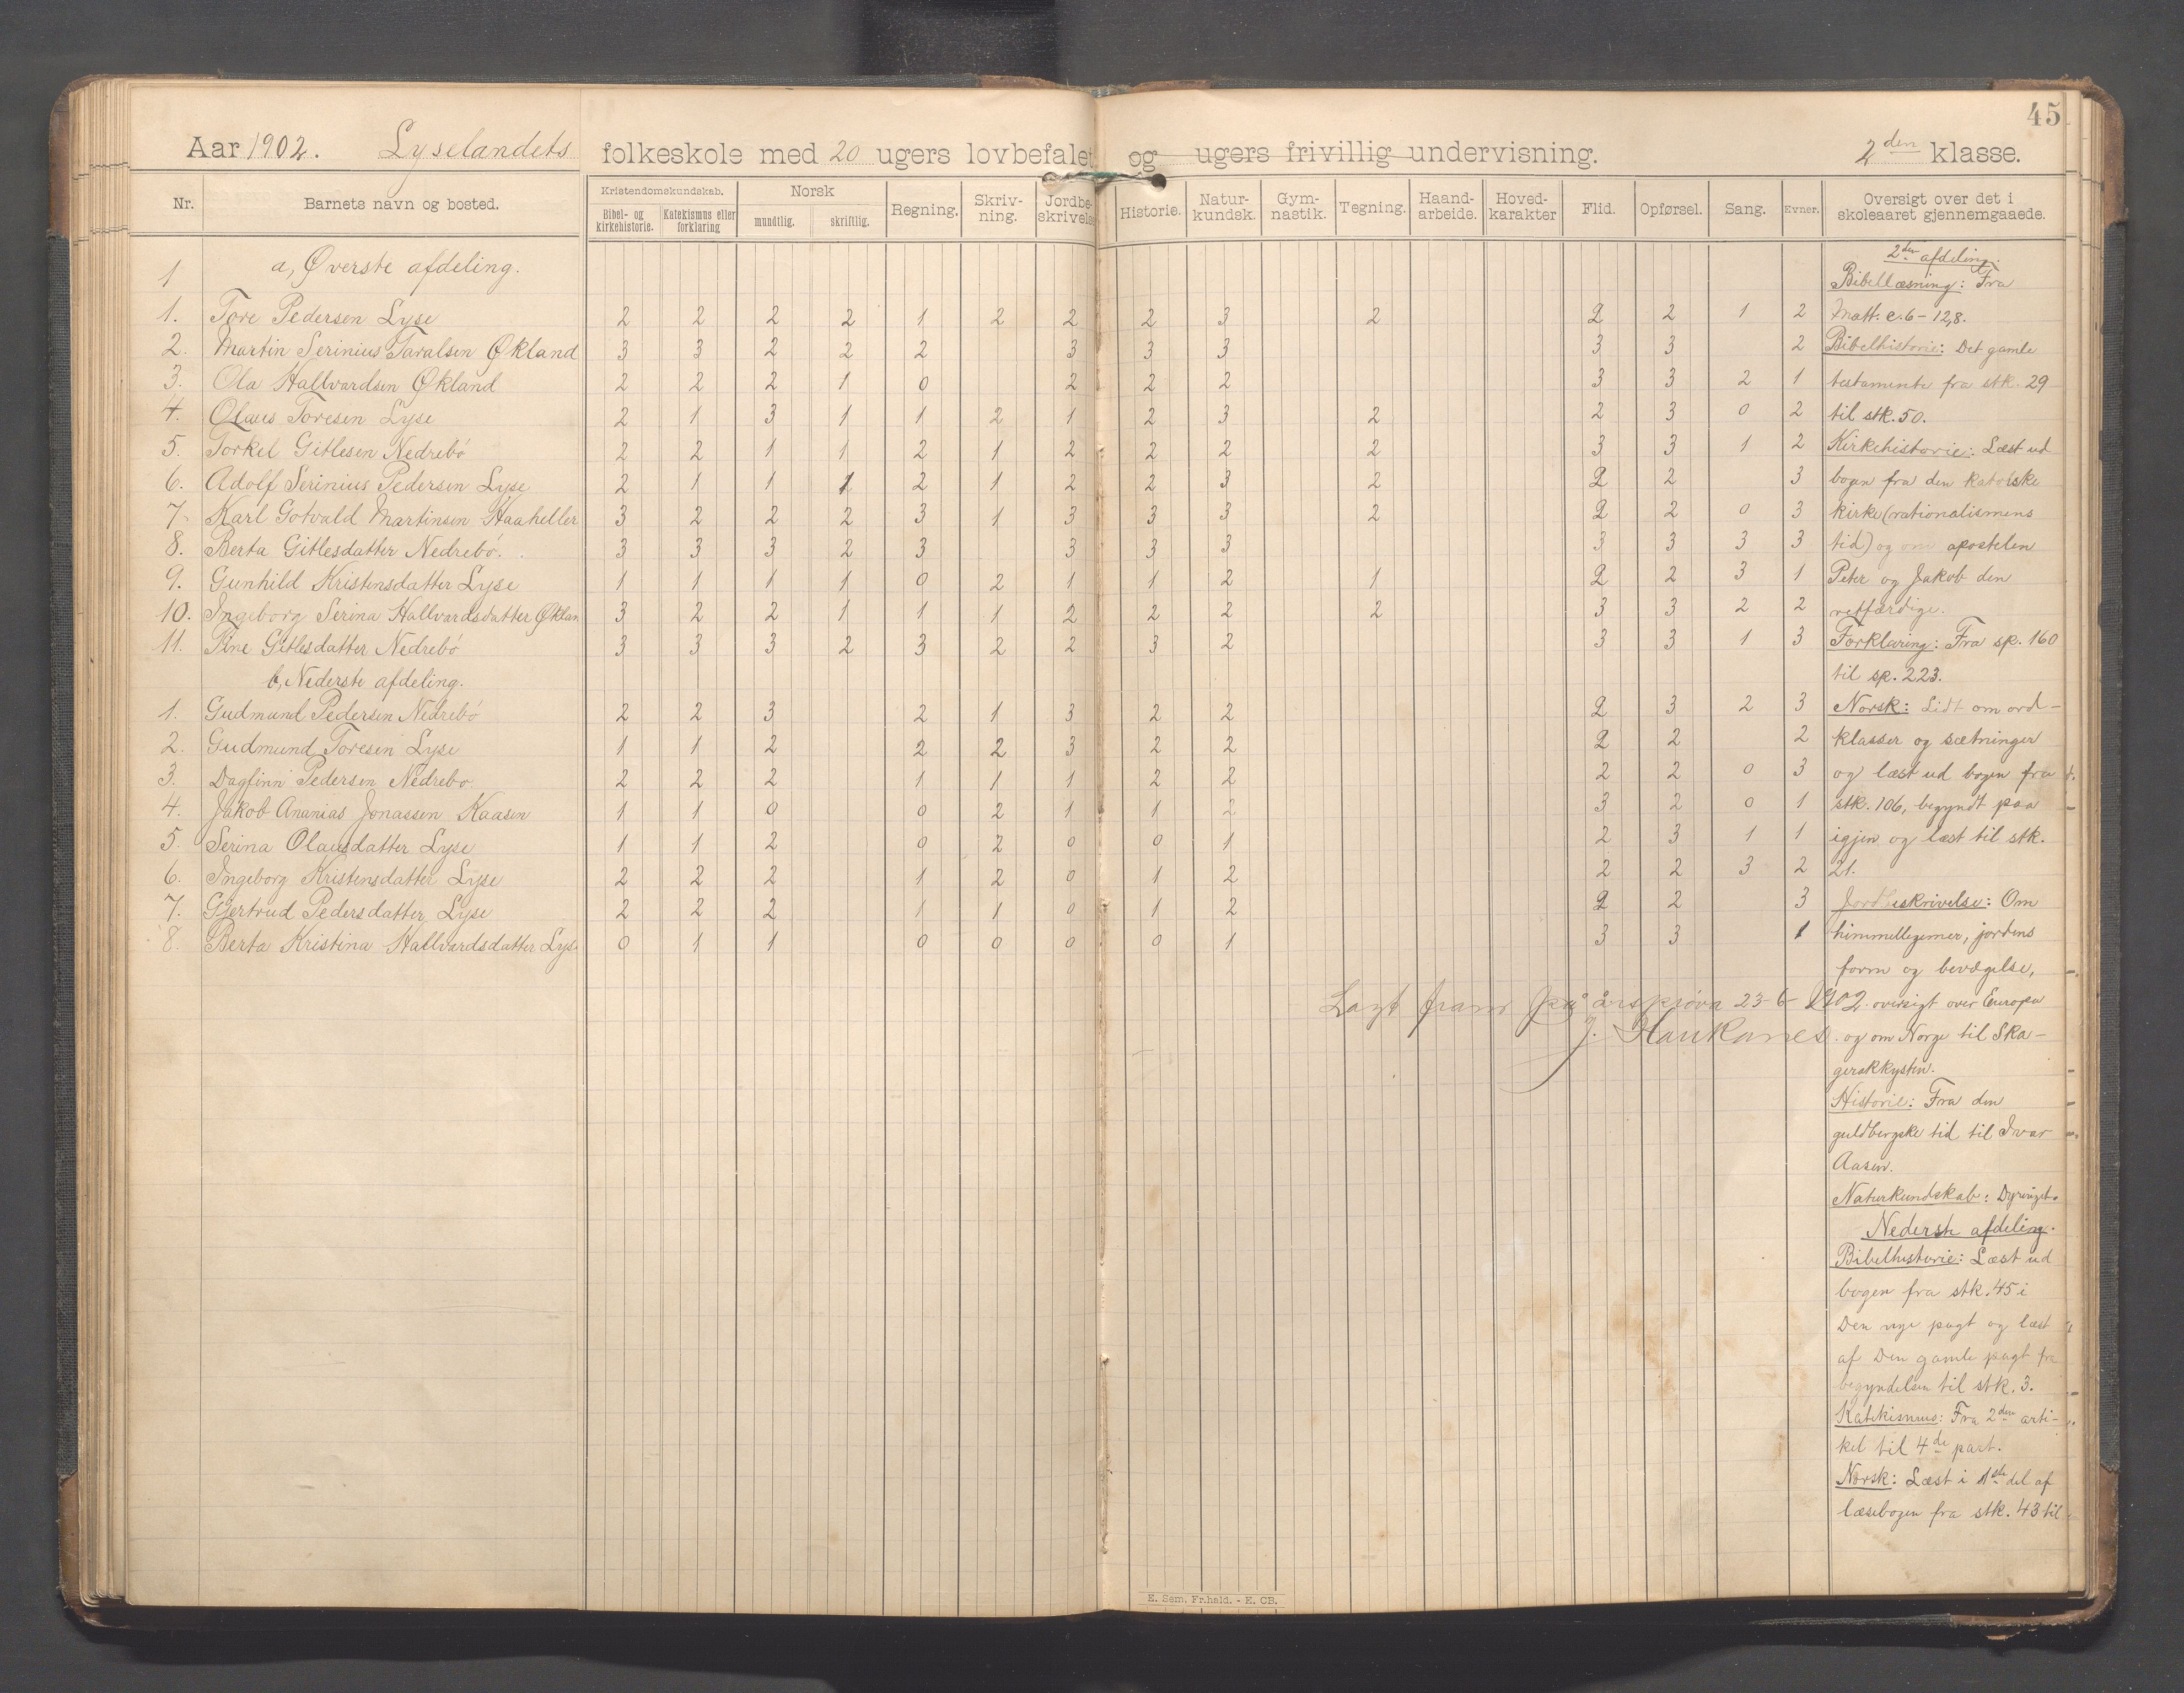 45
Aar 1902. Lyselandets folkeskole med 20 ugers lovbefalet og ugers frivillig undervisning. 2den klasse.
Nr. Barnets navn og bosted. Kristendomskundskab. Bibel- og kirkehistorie. Katekismus eller forklaring Norsk mundtlig. skriftlig. Regning. Skriv-ning. Jordbe-skrivelse Historie. Natur-kundsk. Gym-nastik. Tegning. Haand-arbeide. Hoved-karakter Flid. Opførsel. Sang. Evner. Oversigt over det i skoleaaret gjennemgaaede.
1 a, Øverste afdeling.
1. Tore Pedersen Lyse 2 2 2 2 1 2 2 2 3 2 2 2 1 2
2. Martin Serinius Taralsen Økland 3 3 2 2 2 3 3 3 3 3 2
3. Ola Hallvardsen Økland 2 2 2 1 0 2 2 2 3 3 2 1
4. Olaus Toresen Lyse 2 1 3 1 1 2 1 2 3 2 2 3 0 2
5. Torkel Gitlesen Nedrebø 2 2 1 1 2 1 2 2 2 2 3 3 1 2
6. Adolf Serinius Pedersen Lyse 2 1 1 1 2 1 2 2 3 2 2 2 3
7. Karl Gotvald Martinsen Haaheller 3 2 2 2 3 1 3 3 3 2 2 2 0 3
8. Berta Gitlesdatter Nedrebø. 3 3 3 2 3 3 3 3 3 3 3 3
9. Gunhild Kristensdatter Lyse 1 1 1 1 0 2 1 1 2 1 2 2 3 1
10. Ingeborg Serina Hallvardsdatter Øklan 3 2 2 1 1 1 2 2 2 2 3 3 2 2
11. Tine Gitlesdatter Nedrebø 3 3 3 2 3 2 2 3 2 3 3 1 3
b, Nederste afdeling.
1. Gudmund Pedersen Nedrebø 2 2 3 2 1 3 2 2 2 3 2 3
2. Gudmund Toresen Lyse 1 1 2 2 2 3 2 2 2 2 2
3. Dagfinn Pedersen Nedrebø 2 2 2 1 1 1 2 2 2 2 0 3
4. Jakob Ananias Jonassen Kaasen 1 1 0 0 2 1 1 2 3 2 0 1
5. Serina Olausdatter Lyse 1 1 2 0 2 0 0 1 2 3 1 1
6. Ingeborg Kristensdatter Lyse 2 2 2 1 2 0 1 2 2 2 3 2
7. Gjertrud Pedersdatter Lyse 2 2 2 1 1 0 1 2 2 2 3
8. Berta Kristina Hallvardsdatter Lyse 0 1 1 0 0 0 0 1 3 3 1
Lagt fram på årsprøva 23-6-1902.
J. Haukanes.
2den afdeling.
Bibellæsning: Fra
Matt. c. 6-12,8.
Bibelhistorie: Det gamle
testamente fra stk. 29
til stk. 50.
Kirkehistorie: Læst ud
bogen fra den katolske
kirke (rationalismens
tid) og om apostelen
Peter og Jakob den
retfærdige.
Forklaring: Fra sp. 160
til sp. 223.
Norsk: Lidt om ord-
klasser og sætninger
og læst ud bogen fra
stk. 106, begyndt paa
igjen og læst til stk.
21.
Jordbeskrivelse: Om
himmellegemer, jordens
form og bevægelse,
oversigt over Europa
og om Norge til Ska-
gerakkysten.
Historie: Fra den
guldbergske tid til Ivar
Aasen.
Naturkundskab: Dyreriget.
Nederste afdeling.
Bibelhistorie: Læst ud
bogen fra stk. 45 i
Den nye pagt og læst
af Den gamle pagt fra
begyndelsen til stk. 3.
Katekismus: Fra 2den arti-
kel til 4de part.
Norsk: Læst i 1ste del af
læsebogen fra stk. 43 til
E. Sem, Fr.hald. - E. CB.